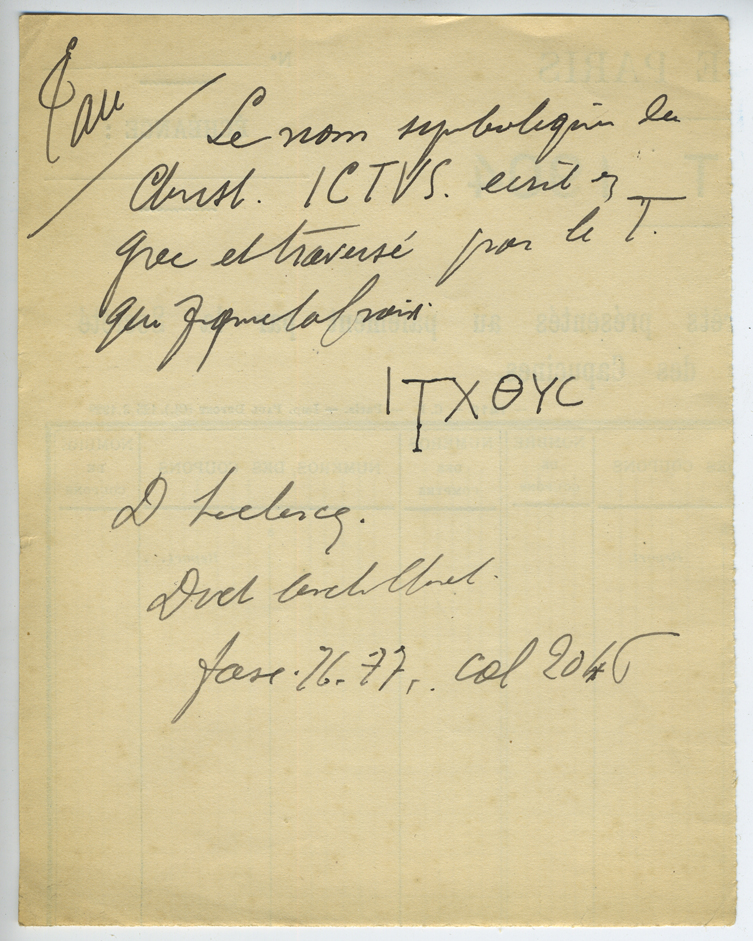 Tau
Le nom symbolique du
Christ. ICTVS. écrit en
grec et traversé par le T.
qui figure la Croix
ITXΘYC
D Leclercq.
Dict Arch Chret.
fasc. 76-77. col 2045